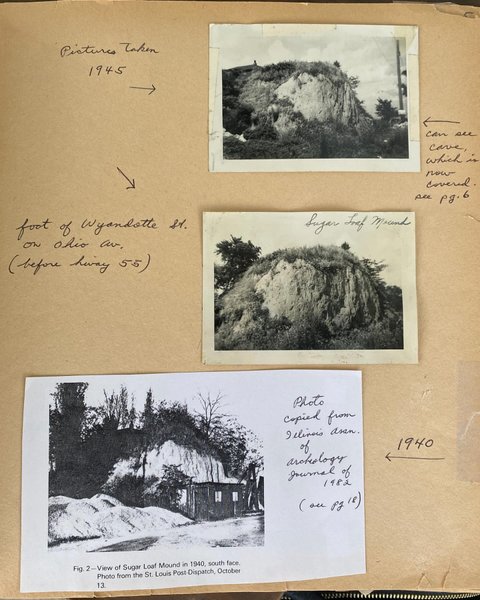 Pictures Taken
1945
can see
cave,
which is
now
covered.
see pg. 6
foot of Wyandotte St.
on Ohio Av.
(before hiway 55)
Sugar Loaf Mound
Photo
copied from
Illinois Assn.
of
Archeology
Journal of
1982
(see pg 18)
1940
Fig. 2—View of Sugar Loaf Mound in 1940, south face.
Photo from the St. Louis Post-Dispatch, October
13.